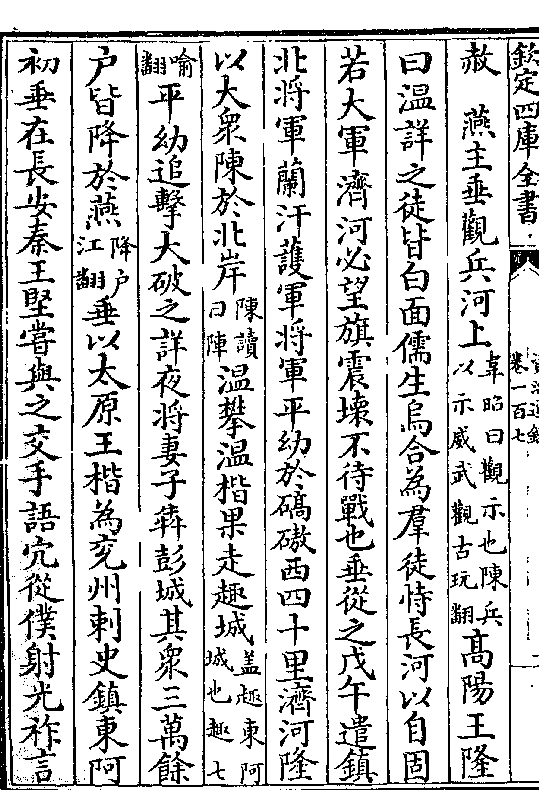 欽定四庫全書
卷一百七
赦 燕主垂觀兵河上韋昭曰觀示也陳兵以示威武觀古玩翻高陽王隆
曰溫詳之徒皆白面儒生烏合為羣徒恃長河以自固
若大軍濟河必望旗震壊不待戰也垂從之戊午遣鎮
北將軍蘭汗護軍將軍平幼於碻磝西四十里濟河隆
以大衆陳於北岸陳讀曰陣溫攀溫楷果走趣城蓋趣東阿城也趣七
喻翻平幼追擊大破之詳夜將妻子犇彭城其衆三萬餘
户皆降於燕降户江翻垂以太原王楷為兖州刺史鎮東阿
初垂在長安秦王堅嘗與之交手語宂從僕射光祚言